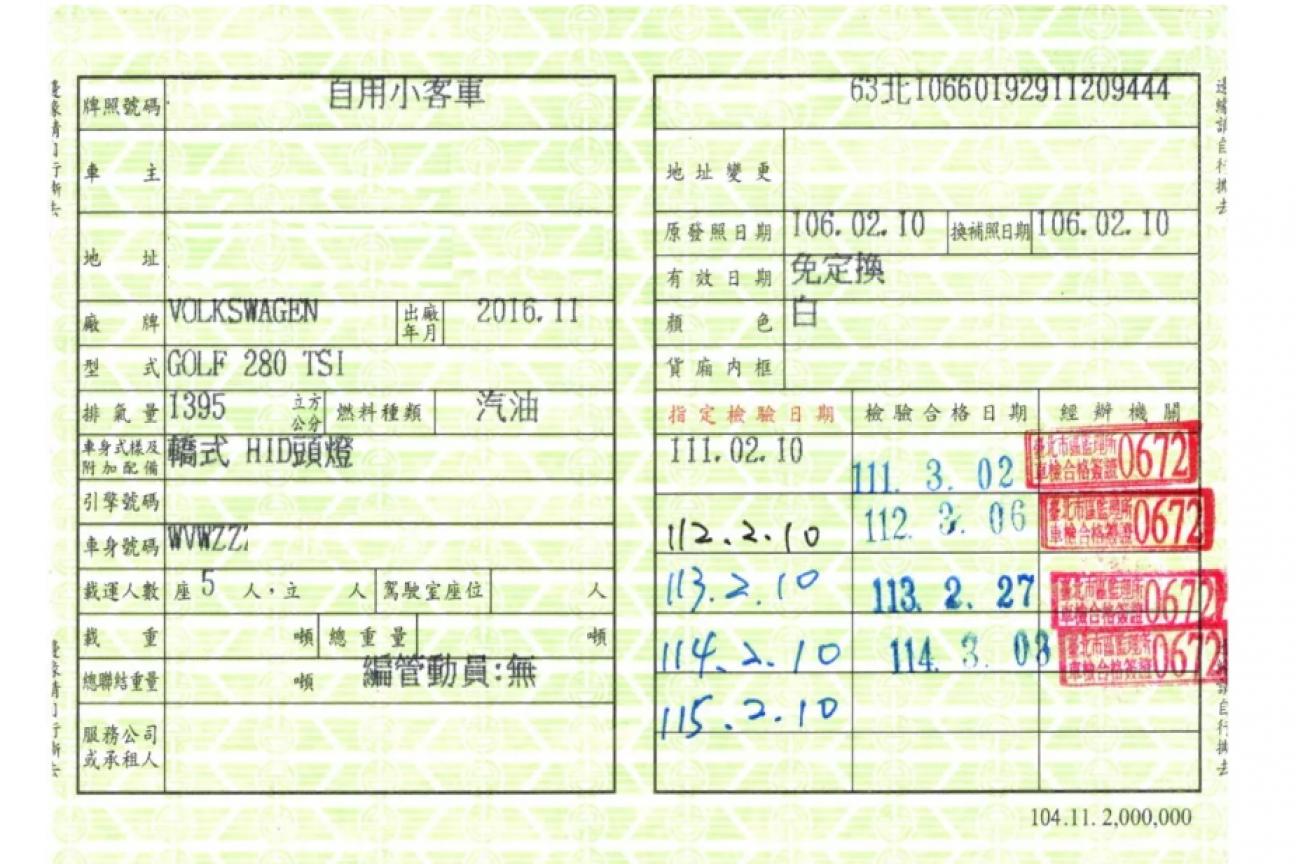 自用小客車
牌照號碼
車主
地址
廠牌 VOLKSWAGEN 出廠年月 2016.11
型式 GOLF 280 TSI
排氣量 1395 立方公分 燃料種類 汽油
車身式樣及附加配備 轎式 HID頭燈
引擎號碼
車身號碼 WVWZZZ
載運人數 座 5 人，立 人 駕駛室座位 人
載重 噸 總重量 噸
總聯結重量 噸 編管動員:無
服務公司或承租人
63北10660192911209444
地址變更
原發照日期 106.02.10 換補照日期 106.02.10
有效日期 免定換
顏色 白
貨廂內框
指定檢驗日期 檢驗合格日期 經辦機關
111.02.10 111. 3. 02 臺北市區監理所 車檢合格簽證 0672
112.2.10 112. 3. 06 臺北市區監理所 車檢合格簽證 0672
113.2.10 113. 2. 27 臺北市區監理所 車檢合格簽證 0672
114.2.10 114. 3. 03 臺北市區監理所 車檢合格簽證 0672
115.2.10
104.11. 2,000,000